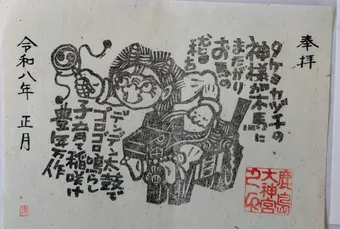 奉拝
タケミカヅチの
神様が木馬に
またがり
お馬の
デンデン太鼓で
ゴロゴロ鳴らし
稲咲け
豊年万作
令和八年 正月
鹿島
大神宮
之印